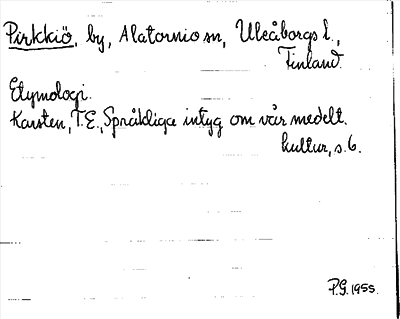 Pirkkiö, by, Alatornio sn, Uleåborgs l.,
Finland.
Etymologi.
Karsten, T.E., Språkliga intyg om vår medelt.
kultur, s. 6.
P.G. 1955.